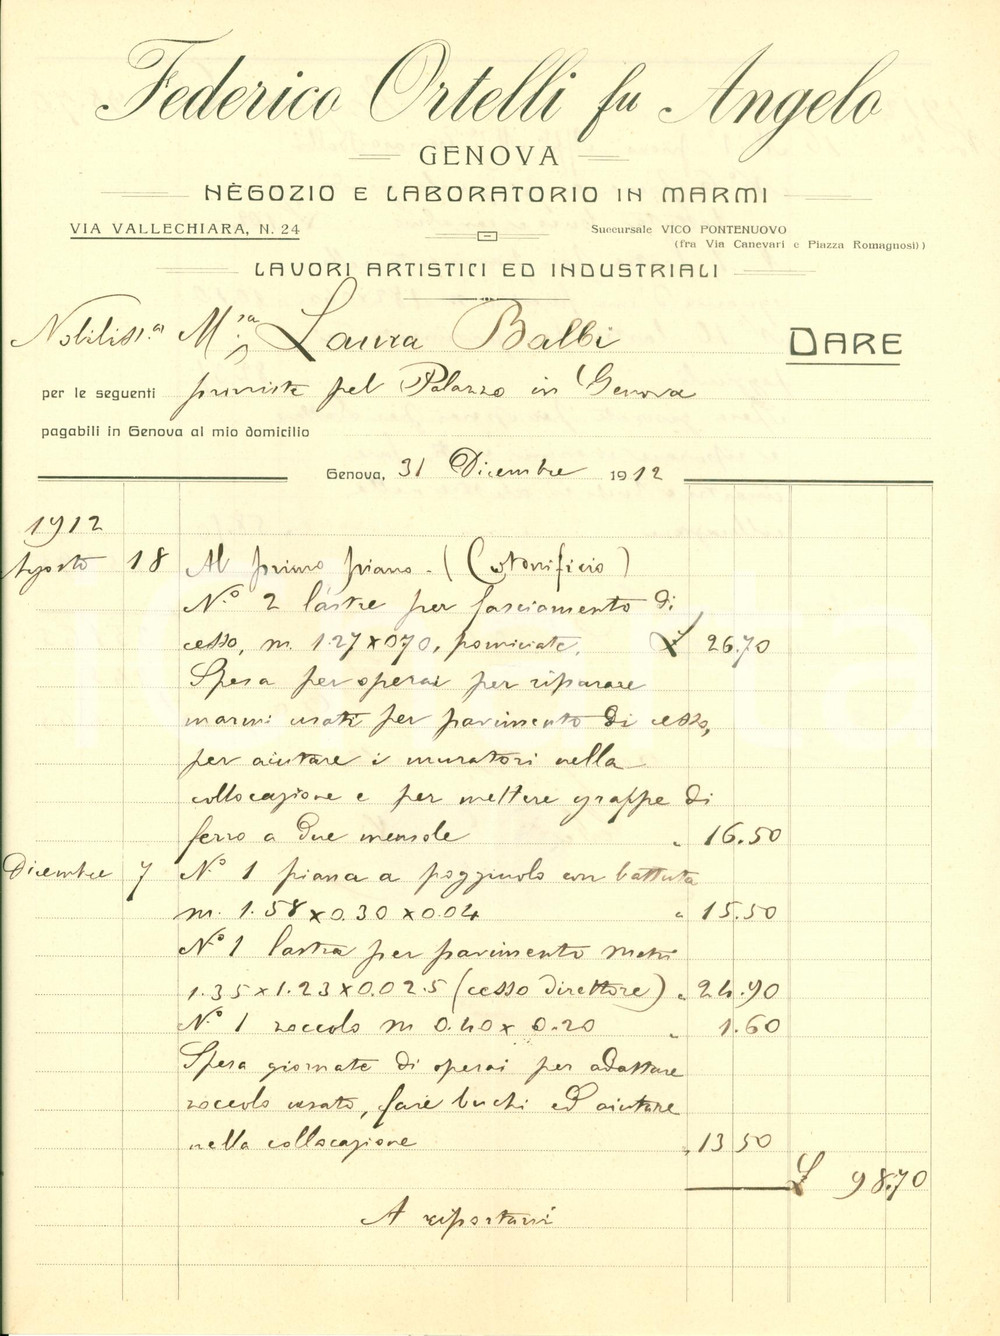 Federico Ortelli fu Angelo
GENOVA
NEGOZIO E LABORATORIO IN MARMI
VIA VALLECHIARA, N. 24
Succursale VICO PONTENUOVO
(fra Via Canevari e Piazza Romagnosi))
LAVORI ARTISTICI ED INDUSTRIALI
Nobiliss.a M.sa Laura Balbi
DARE
per le seguenti provviste pel Palazzo in Genova
pagabili in Genova al mio domicilio
Genova, 31 Dicembre 1912
1912
Agosto 18 Al primo piano - (Cotonificio)
N.o 2 lastre per fasciamento di
cesso, m. 1.27 x 070, pomiciate, £ 26.70
Spesa per operai per riparare
marmi usati per pavimento di cesso,
per aiutare i muratori nella
collocazione e per mettere grappe di
ferro a due mensole " 16.50
Dicembre 7 N.o 1 piana a poggiuolo con battuta
m. 1.58 x 0.30 x 0.04 " 15.50
N.o 1 lastra per pavimento metri
1.35 x 1.23 x 0.02.5 (cesso direttore) " 24.90
N.o 1 zoccolo m 0.40 x 0.20 " 1.60
Spesa giornate di operai per adattare
zoccolo usato, fare buchi ed aiutare
nella collocazione " 13 50
£ 98.70
A riportarsi